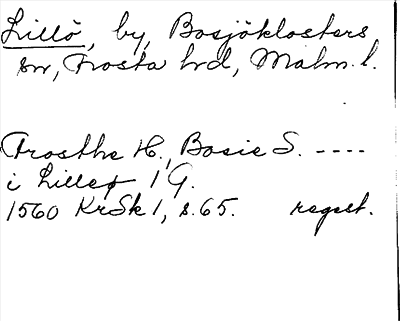 Lillö, by, Bosjöklosters
sn, Frosta hd, Malm. l.
Frosthe H., Bosie S. ----
i Lilleø 1 G.
1560 KrSk 1, s. 65. regest.